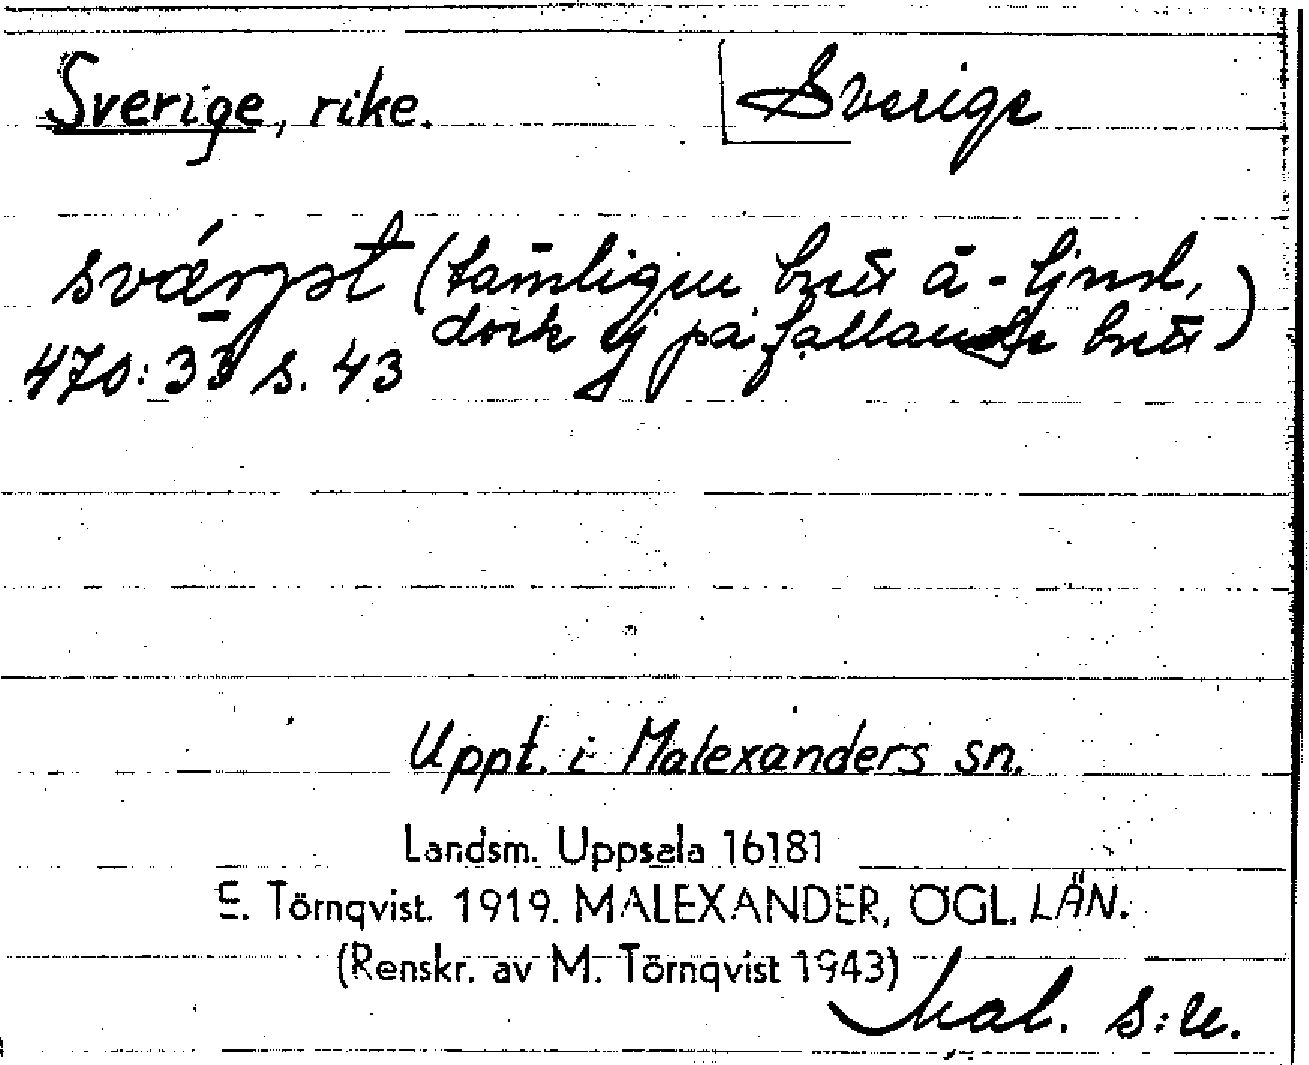 Sverige, rike.
Sverige
(tämligen brett ä-ljud,
dock ej på fallande brett)
470:33 s. 43
Uppt. i Malexanders sn.
Landsm. Uppsala 16181
E. Törnqvist. 1919. MALEXANDER, ÖGL. LÄN.
(Renskr. av M. Törnqvist 1943)